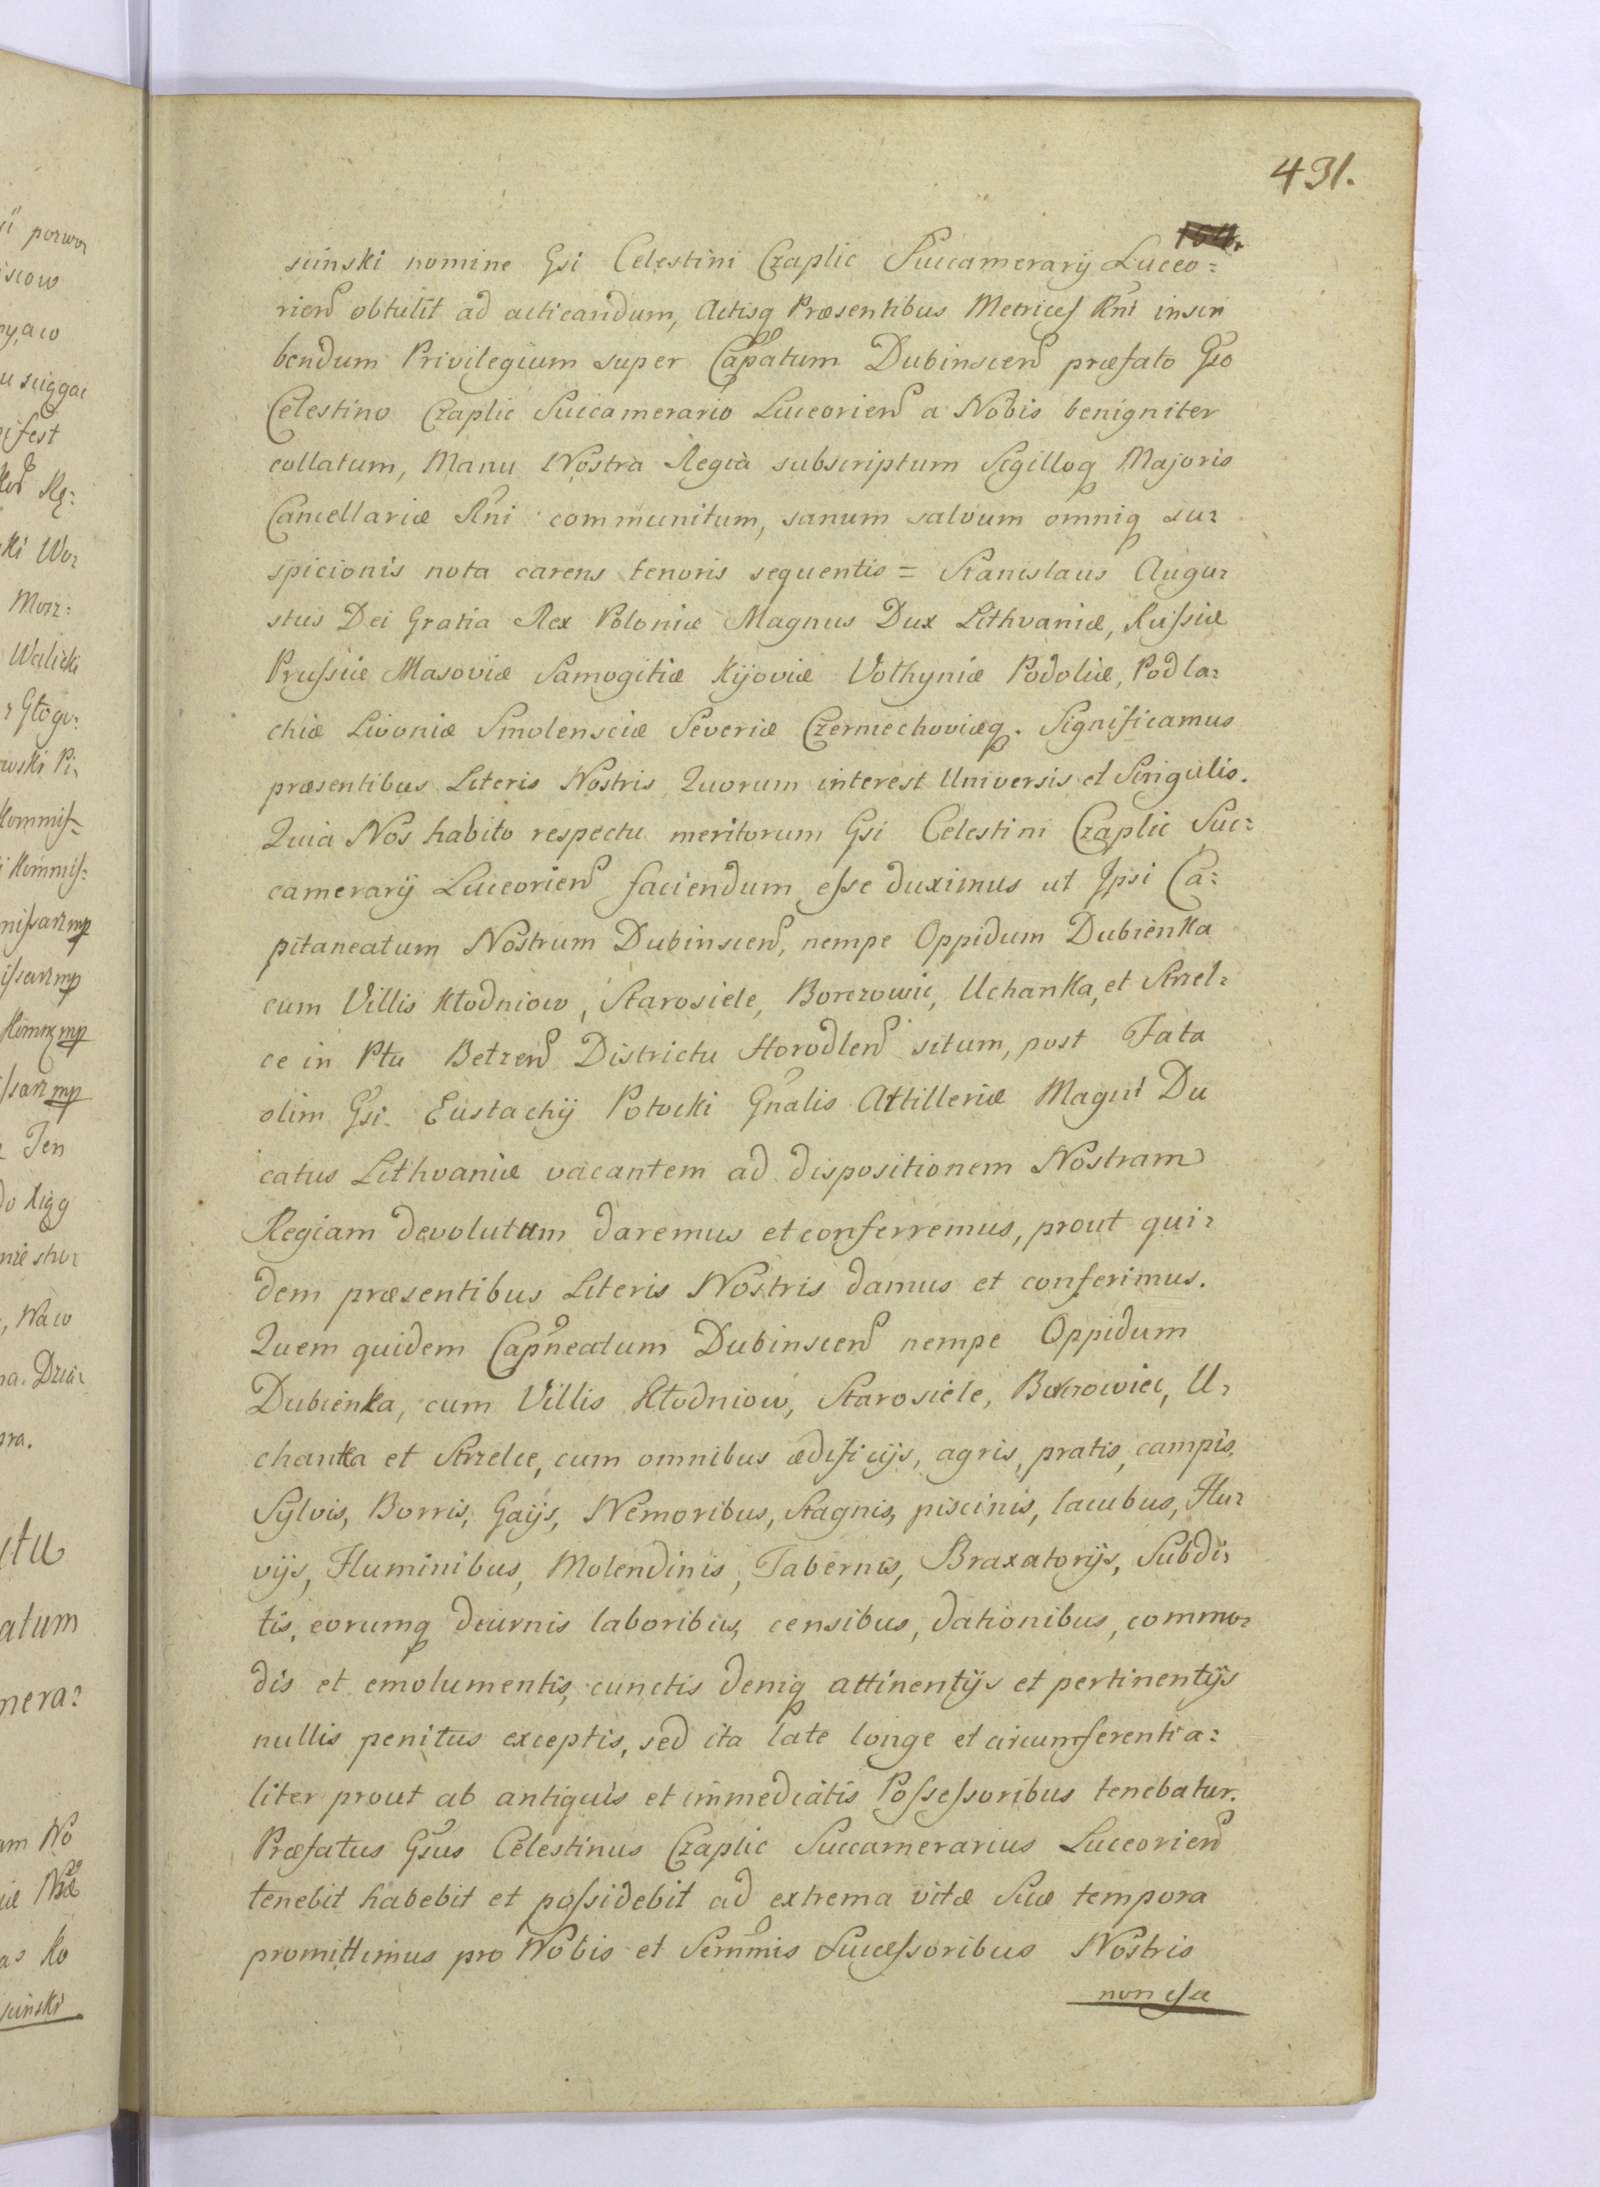 431.
scinski nomine Gsi Celestini Czaplic Succamerarij Luceo=
rien̄ obtulit ad acticandum, Actisq Præsentibus Metrices Rn̄i inscri
bendum Privilegium super Cap̄atum Dubinscen̄ præfato Gso
Celestino Czaplic Succamerario Luceorien̄ a Nobis benigniter
collatum, Manu Nostrà Regià subscriptum Sigilloq Majoris
Cancellariæ Rn̄i communitum, sanum salvum omniq su=
spicionis nota carens tenoris sequentis = Stanislaus Augu=
stus Dei Gratia Rex Poloniæ Magnus Dux Lithvaniæ, Russiæ
Prussiæ Masoviæ Samogitiæ Kijoviæ Volhyniæ Podoliæ, Podla=
chiæ Livoniæ Smolensciæ Severiæ Czerniechoviæq. Significamus
præsentibus Literis Nostris Quorum interest Universis et Singulis.
Quia Nos habito respectu meritorum Gsi Celestini Czaplic Suc=
camerarij Luceorien̄ faciendum esse duximus ut Ipsi Ca=
pitaneatum Nostrum Dubinscen̄, nempe Oppidum Dubienka
cum Villis Kłodniow, Starosiele, Borczowic, Uchanka, et Strzel=
ce in Ptu Betzen̄ Districtu Horodlen̄ situm, post Fata
olim Gsi. Eustachij Potocki Gn̄alis Attilleriæ Magni Du
catus Lithvaniæ vacantem ad dispositionem Nostram
Regiam devolutum daremus et conferremus, prout qui=
dem præsentibus Literis Nostris damus et conferimus.
Quem quidem Cap̄neatum Dubinscen̄ nempe Oppidum
Dubienka, cum Villis Kłodniow, Starosiele, Borrowiec, U=
chanka et Strzelce, cum omnibus ædificijs, agris, pratis, campis,
Sylvis, Borris, Gaijs, Nemoribus, Stagnis, piscinis, lacubus, Flu=
vijs, Fluminibus, Molendinis, Tabernis, Braxatorijs, Subdi=
tis, eorumq diurnis laboribus, censibus, dationibus, commo=
dis et emolumentis, cunctis deniq attinentijs et pertinentijs
nullis penitus exceptis, sed ita late longe et circumferentia=
liter prout ab antiquis et immediatis Possessoribus tenebatur.
Præfatus Gsus Celestinus Czaplic Succamerarius Luceorien̄
tenebit habebit et possidebit ad extrema vitæ Suæ tempora
promittimus pro Nobis et Serm̄mis Successoribus Nostris
non esse